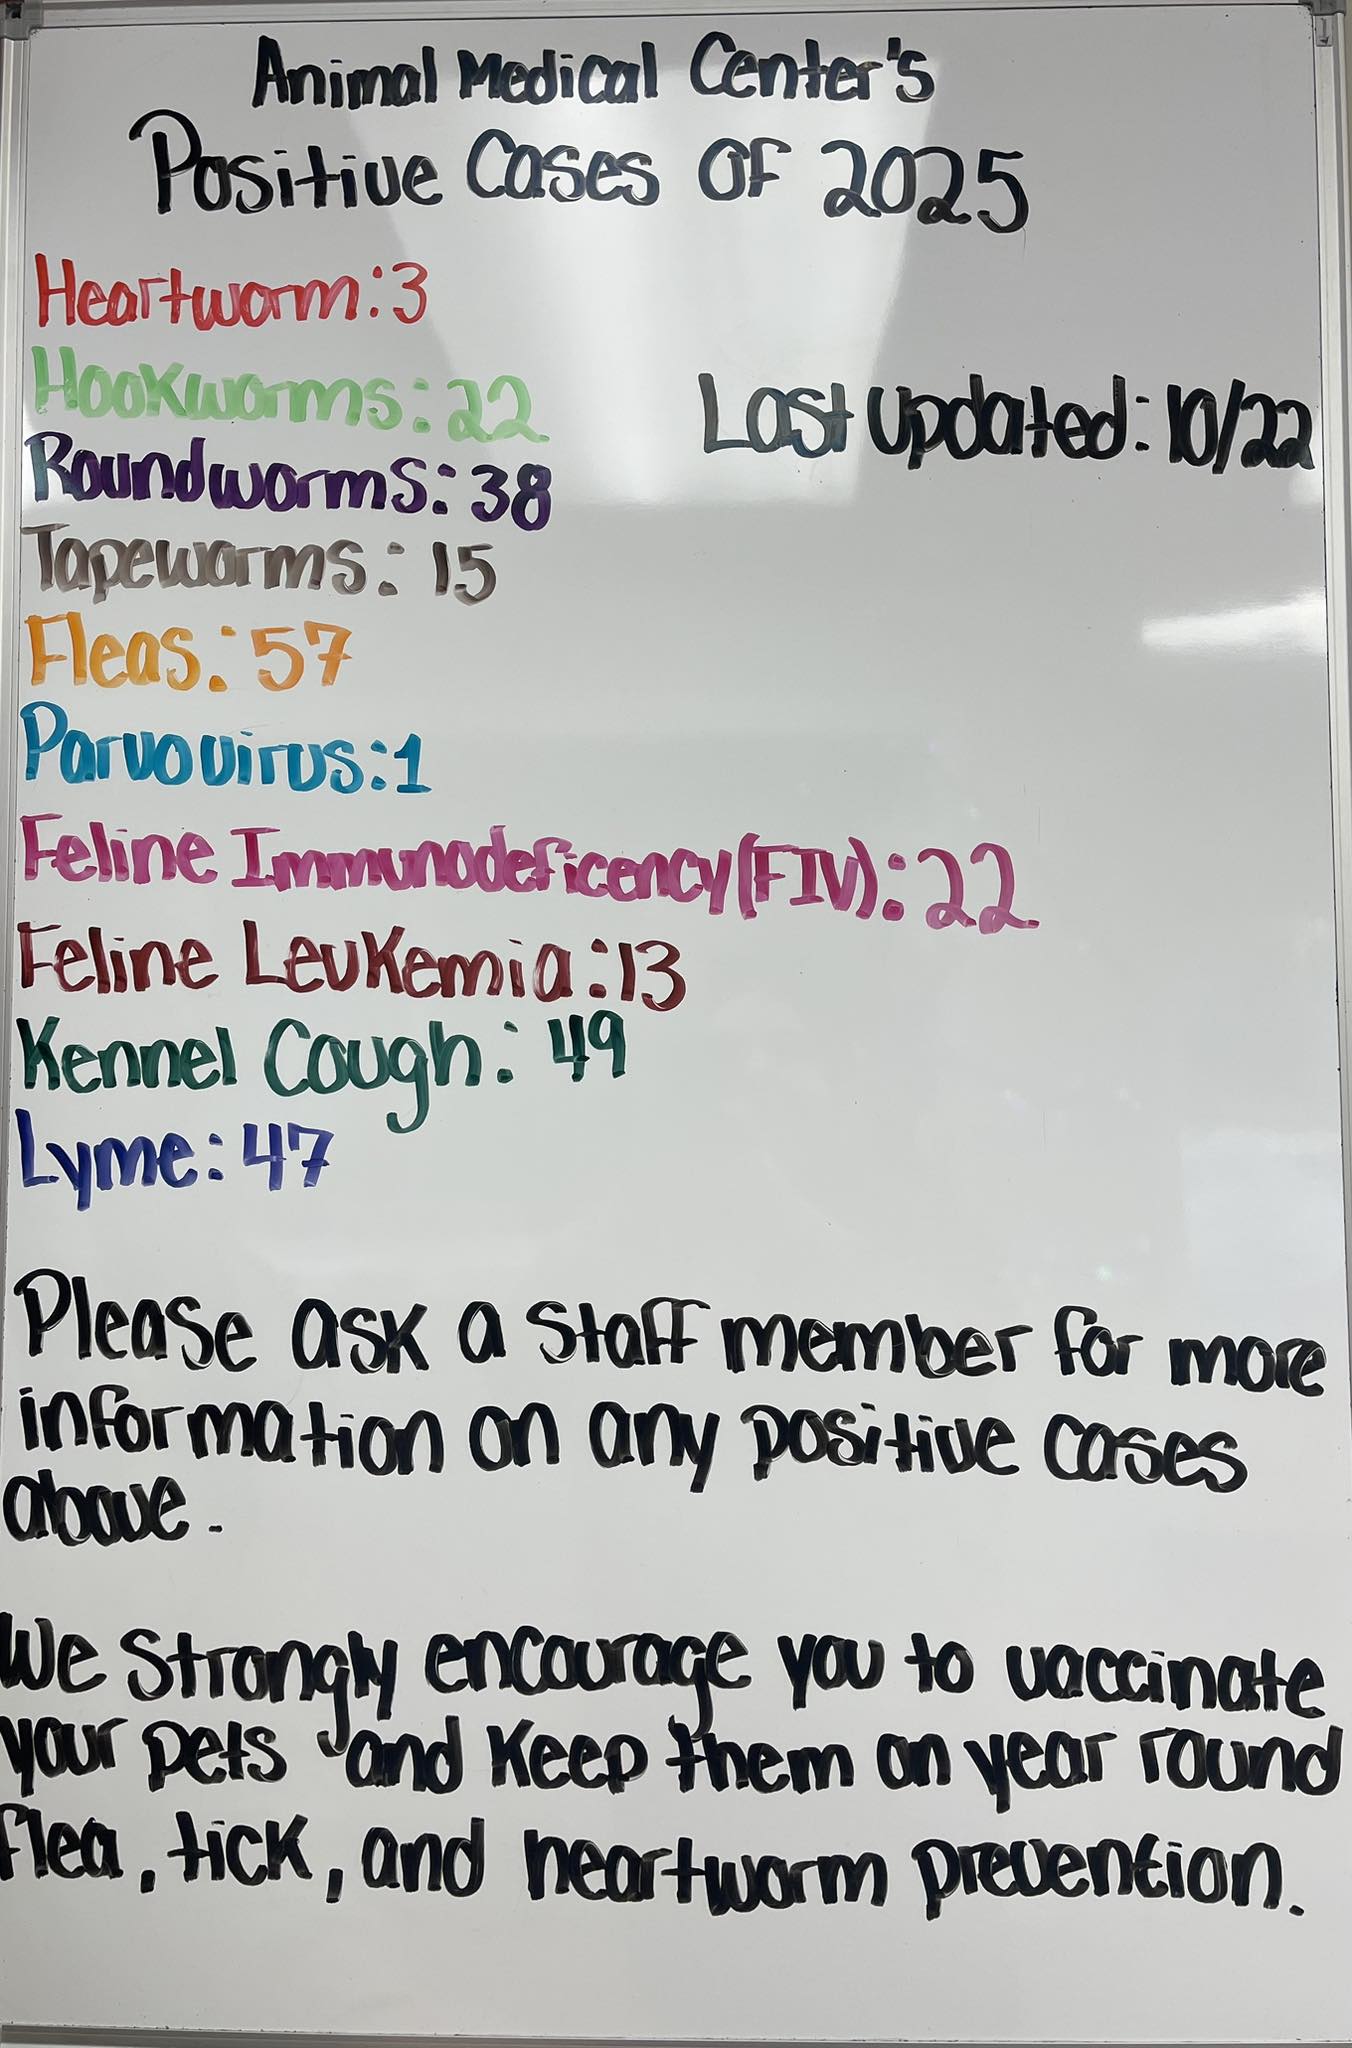 Animal Medical Center's
Positive Cases OF 2025
Heartworm:3
Hookworms:22
Last updated: 10/22
Roundworms:38
Tapeworms: 15
Fleas:57
Parvovirus:1
Feline Immunodeficency(FIV):22
Feline Leukemia:13
Kennel Cough: 49
Lyme:47
Please ask a staff member for more
information on any positive cases
above.
We strongly encourage you to vaccinate
your pets and keep them on year round
flea, tick, and heartworm prevention.